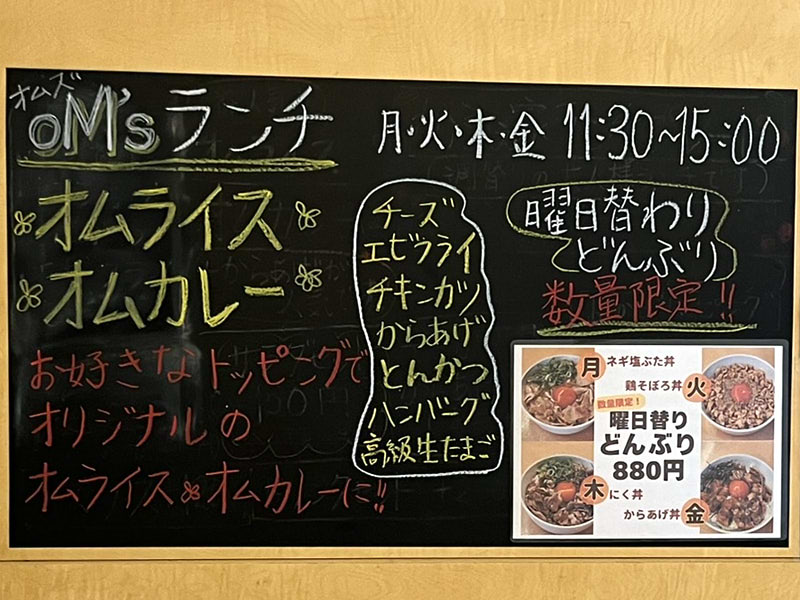 オムズ
oM'sランチ
月・火・木・金 11:30~15:00
オムライス
オムカレー
お好きなトッピングで
オリジナルの
オムライス オムカレーに!!
チーズ
エビフライ
チキンカツ
からあげ
とんかつ
ハンバーグ
高級生たまご
曜日替わり
どんぶり
数量限定!!
月 ネギ塩ぶた丼
鶏そぼろ丼 火
数量限定!
曜日替り
どんぶり
880円
木 にく丼
からあげ丼 金